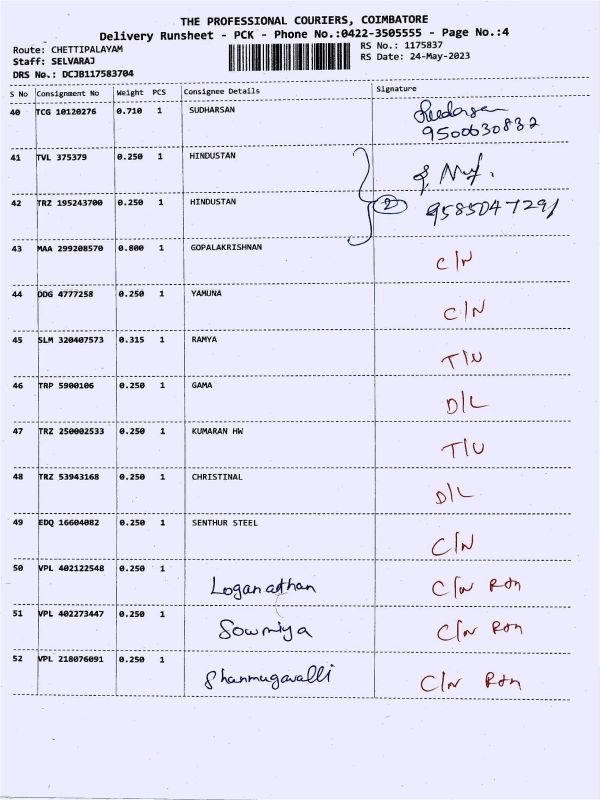 THE PROFESSIONAL COURIERS, COIMBATORE
Delivery Runsheet - PCK - Phone No.:0422-3505555 - Page No.:4
Route: CHETTIPALAYAM RS No.: 1175837
Staff: SELVARAJ RS Date: 24-May-2023
DRS No.: DCJB117583704
S No Consignment No Weight PCS Consignee Details Signature
40 TCG 10120276 0.710 1 SUDHARSAN
9500630832
41 TVL 375379 0.250 1 HINDUSTAN
42 TRZ 195243700 0.250 1 HINDUSTAN 2 9585047291
43 MAA 299208570 0.800 1 GOPALAKRISHNAN C/N
44 ODG 4777258 0.250 1 YAMUNA C/N
45 SLM 320407573 0.315 1 RAMYA T/U
46 TRP 5900106 0.250 1 GAMA D/L
47 TRZ 250002533 0.250 1 KUMARAN HW T/U
48 TRZ 53943168 0.250 1 CHRISTINAL D/L
49 EDQ 16604082 0.250 1 SENTHUR STEEL C/N
50 VPL 402122548 0.250 1 Loganathan C/N Rtn
51 VPL 402273447 0.250 1 Sowmiya C/N Rtn
52 VPL 218076091 0.250 1 Shanmugavalli C/N Rtn